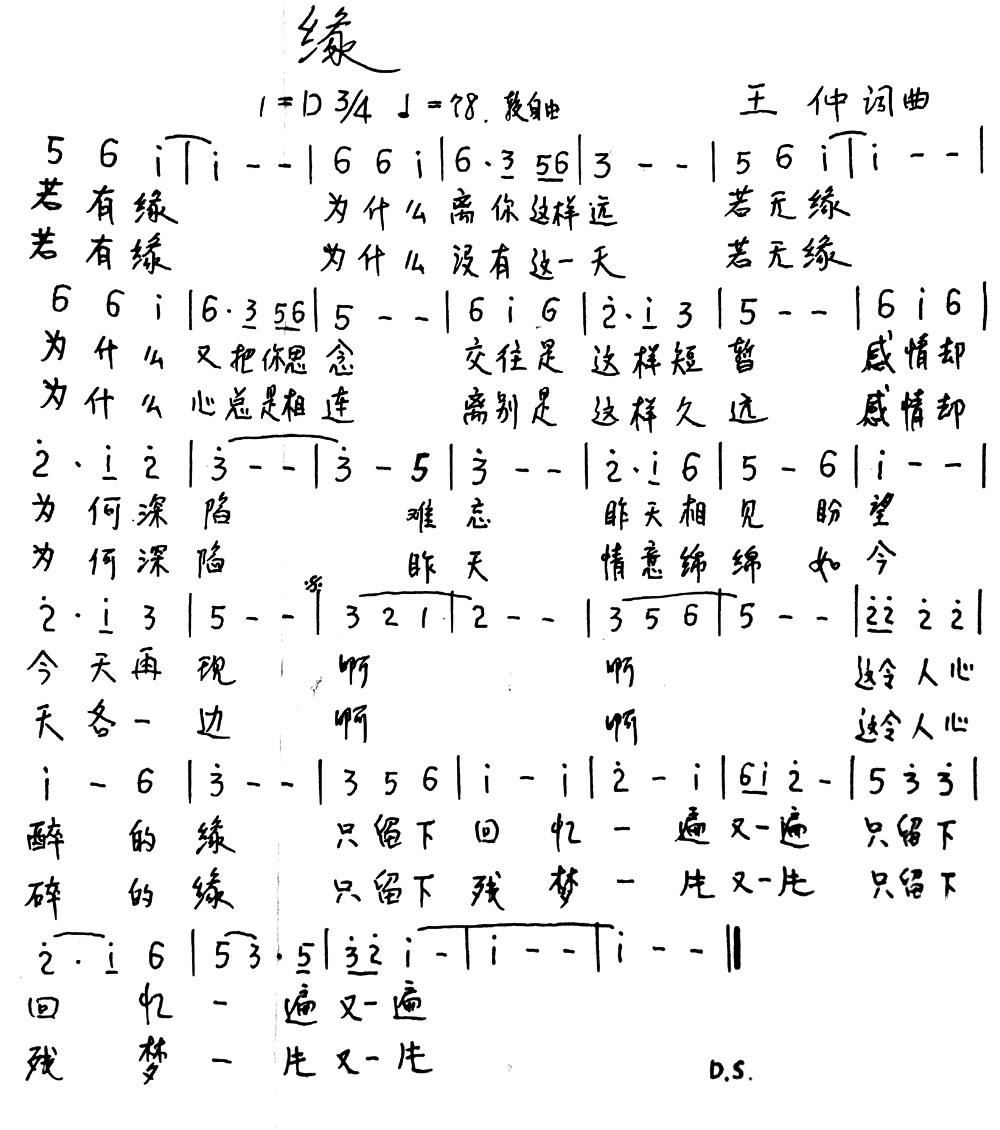 缘
1=D 3/4 ♩=78. 较自由 王 仲 词曲
5 6 i | i - - | 6 6 i | 6 · 3 56 | 3 - - | 5 6 i | i - - |
若 有 缘 为 什 么 离 你 这样 远 若 无 缘
若 有 缘 为 什 么 没 有 这一 天 若 无 缘
6 6 i | 6 · 3 56 | 5 - - | 6 i 6 | 2̇ · i 3 | 5 - - | 6 i 6 |
为 什 么 又 把你思 念 交 往 是 这 样 短 暂 感 情 却
为 什 么 心 总是相 连 离 别 是 这 样 久 远 感 情 却
2̇ · i 2̇ | 3̇ - - | 3̇ - 5 | 3̇ - - | 2̇ · i 6 | 5 - 6 | i - - |
为 何 深 陷 难 忘 昨 天 相 见 盼 望
为 何 深 陷 昨 天 情 意 绵 绵 如 今
2̇ · i 3 | 5 - - | 3 2 1 | 2 - - | 3 5 6 | 5 - - | 2̇2̇ 2̇ 2̇ |
今 天 再 现 啊 啊 这令 人 心
天 各 一 边 啊 啊 这令 人 心
i - 6 | 3̇ - - | 3 5 6 | i - i | 2̇ - i | 6i 2̇ - | 5 3̇ 3̇ |
醉 的 缘 只 留 下 回 忆 一 遍 又一 遍 只 留 下
碎 的 缘 只 留 下 残 梦 一 片 又一 片 只 留 下
2̇ · i 6 | 5 3 · 5 | 3̇2̇ i - | i - - | i - - ‖
回 忆 一 遍 又一 遍
残 梦 一 片 又一 片
D.S.